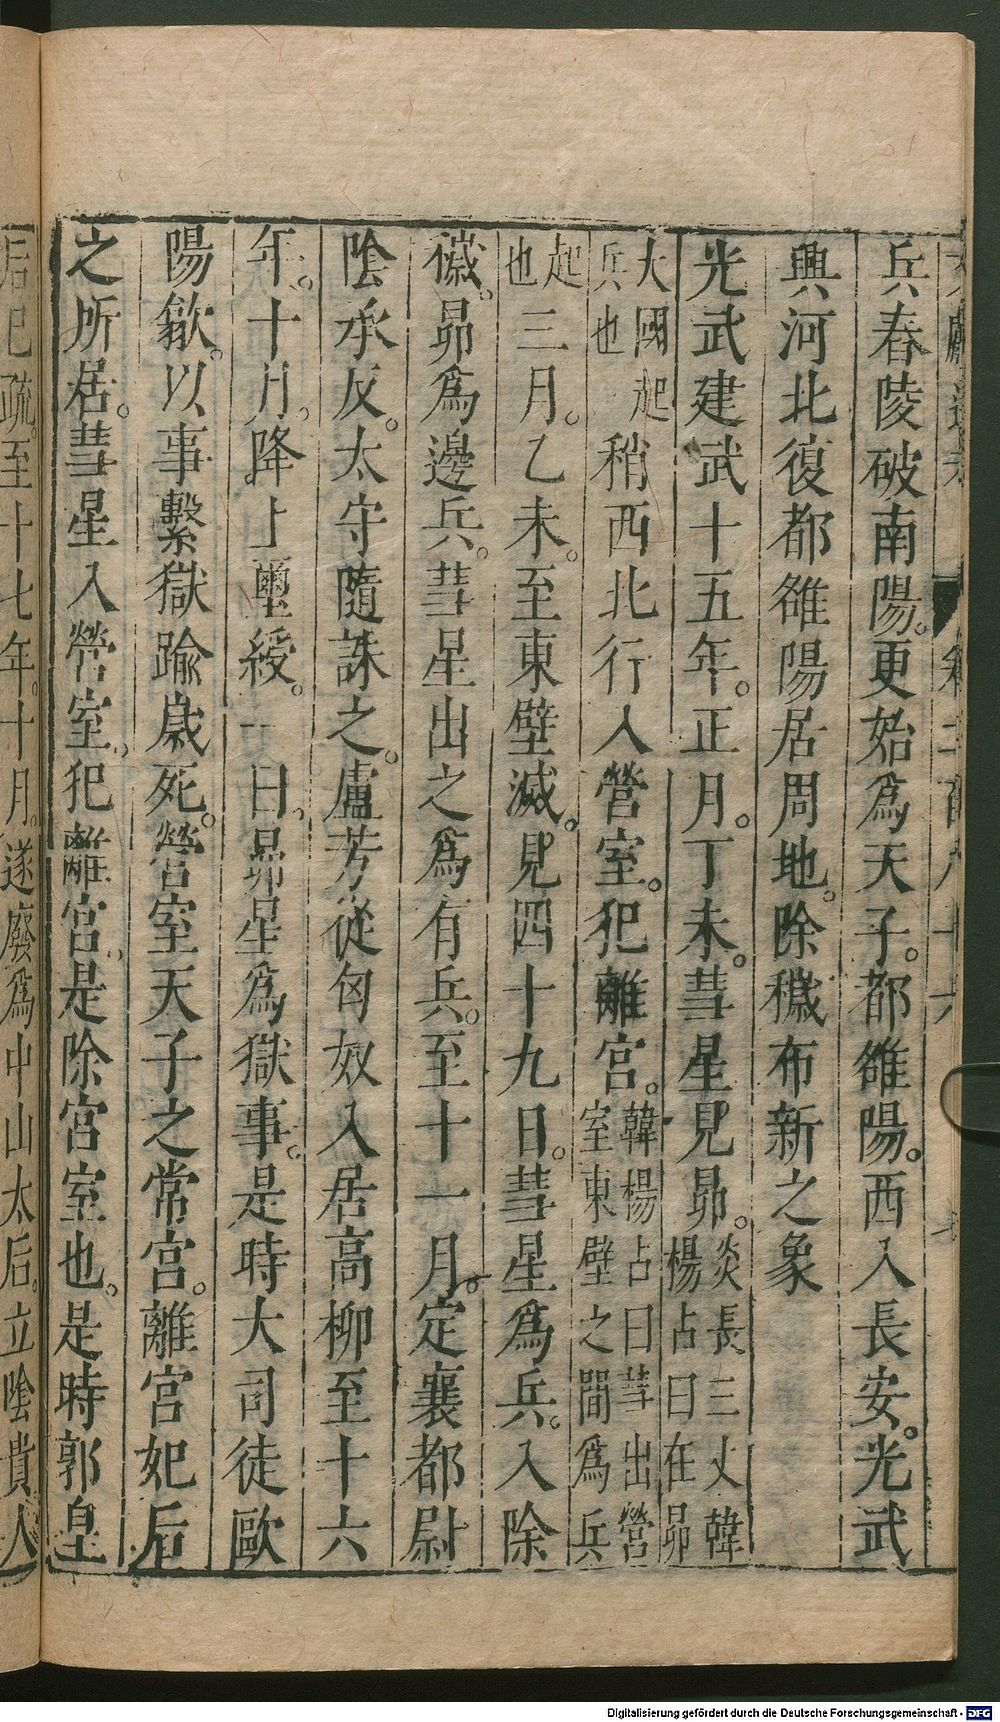 兵舂陵破南陽。更始爲天子。都雒陽。西入長安。光武
興河北復都雒陽居周地。除穢布新之象
光武建武十五年。正月。丁未。彗星見昴。炎長三丈韓楊占曰在昴
大國起兵也稍西北行入營室。犯離宮。韓楊占曰彗出營室東壁之間爲兵
起也三月。乙未。至東壁滅。見四十九日。彗星爲兵。入除
穢。昴爲邊兵。彗星出之爲有兵。至十一月。定襄都尉
陰承反。太守隨誅之。盧芳從匈奴入居高柳至十六
年。十月。降上璽綬。一日。昴星爲獄事。是時大司徒歐
陽歙。以事繫獄踰歲死。營室天子之常宮。離宮妃后
之所居。彗星入營室。犯離宮。是除宮室也。是時郭皇
后已疏。至十七年。十月。遂廢爲中山太后。立陰貴人
Digitalisierung gefördert durch die Deutsche Forschungsgemeinschaft - DFG